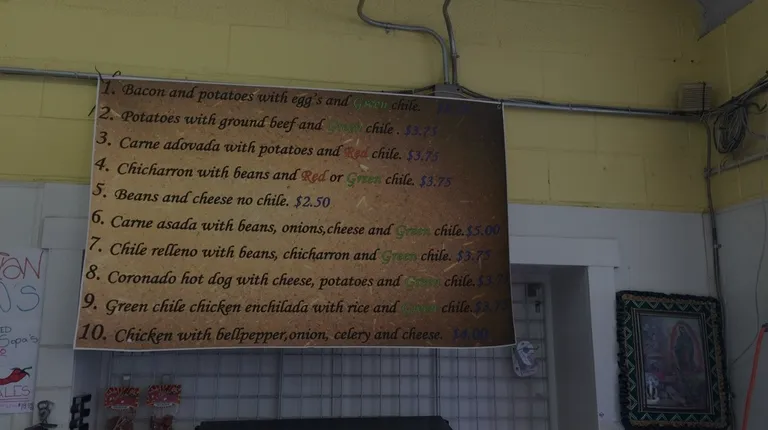 1. Bacon and potatoes with egg's and Green chile.
2. Potatoes with ground beef and Green chile . $3.75
3. Carne adovada with potatoes and Red chile. $3.75
4. Chicharron with beans and Red or Green chile. $3.75
5. Beans and cheese no chile. $2.50
6. Carne asada with beans, onions,cheese and Green chile.$5.00
7. Chile relleno with beans, chicharron and Green chile. $3.75
8. Coronado hot dog with cheese, potatoes and Green chile.$3.7
9. Green chile chicken enchilada with rice and Green chile.$3.75
10. Chicken with bellpepper,onion, celery and cheese. $4.00
TON
NS
ED
Sopa's
ALES